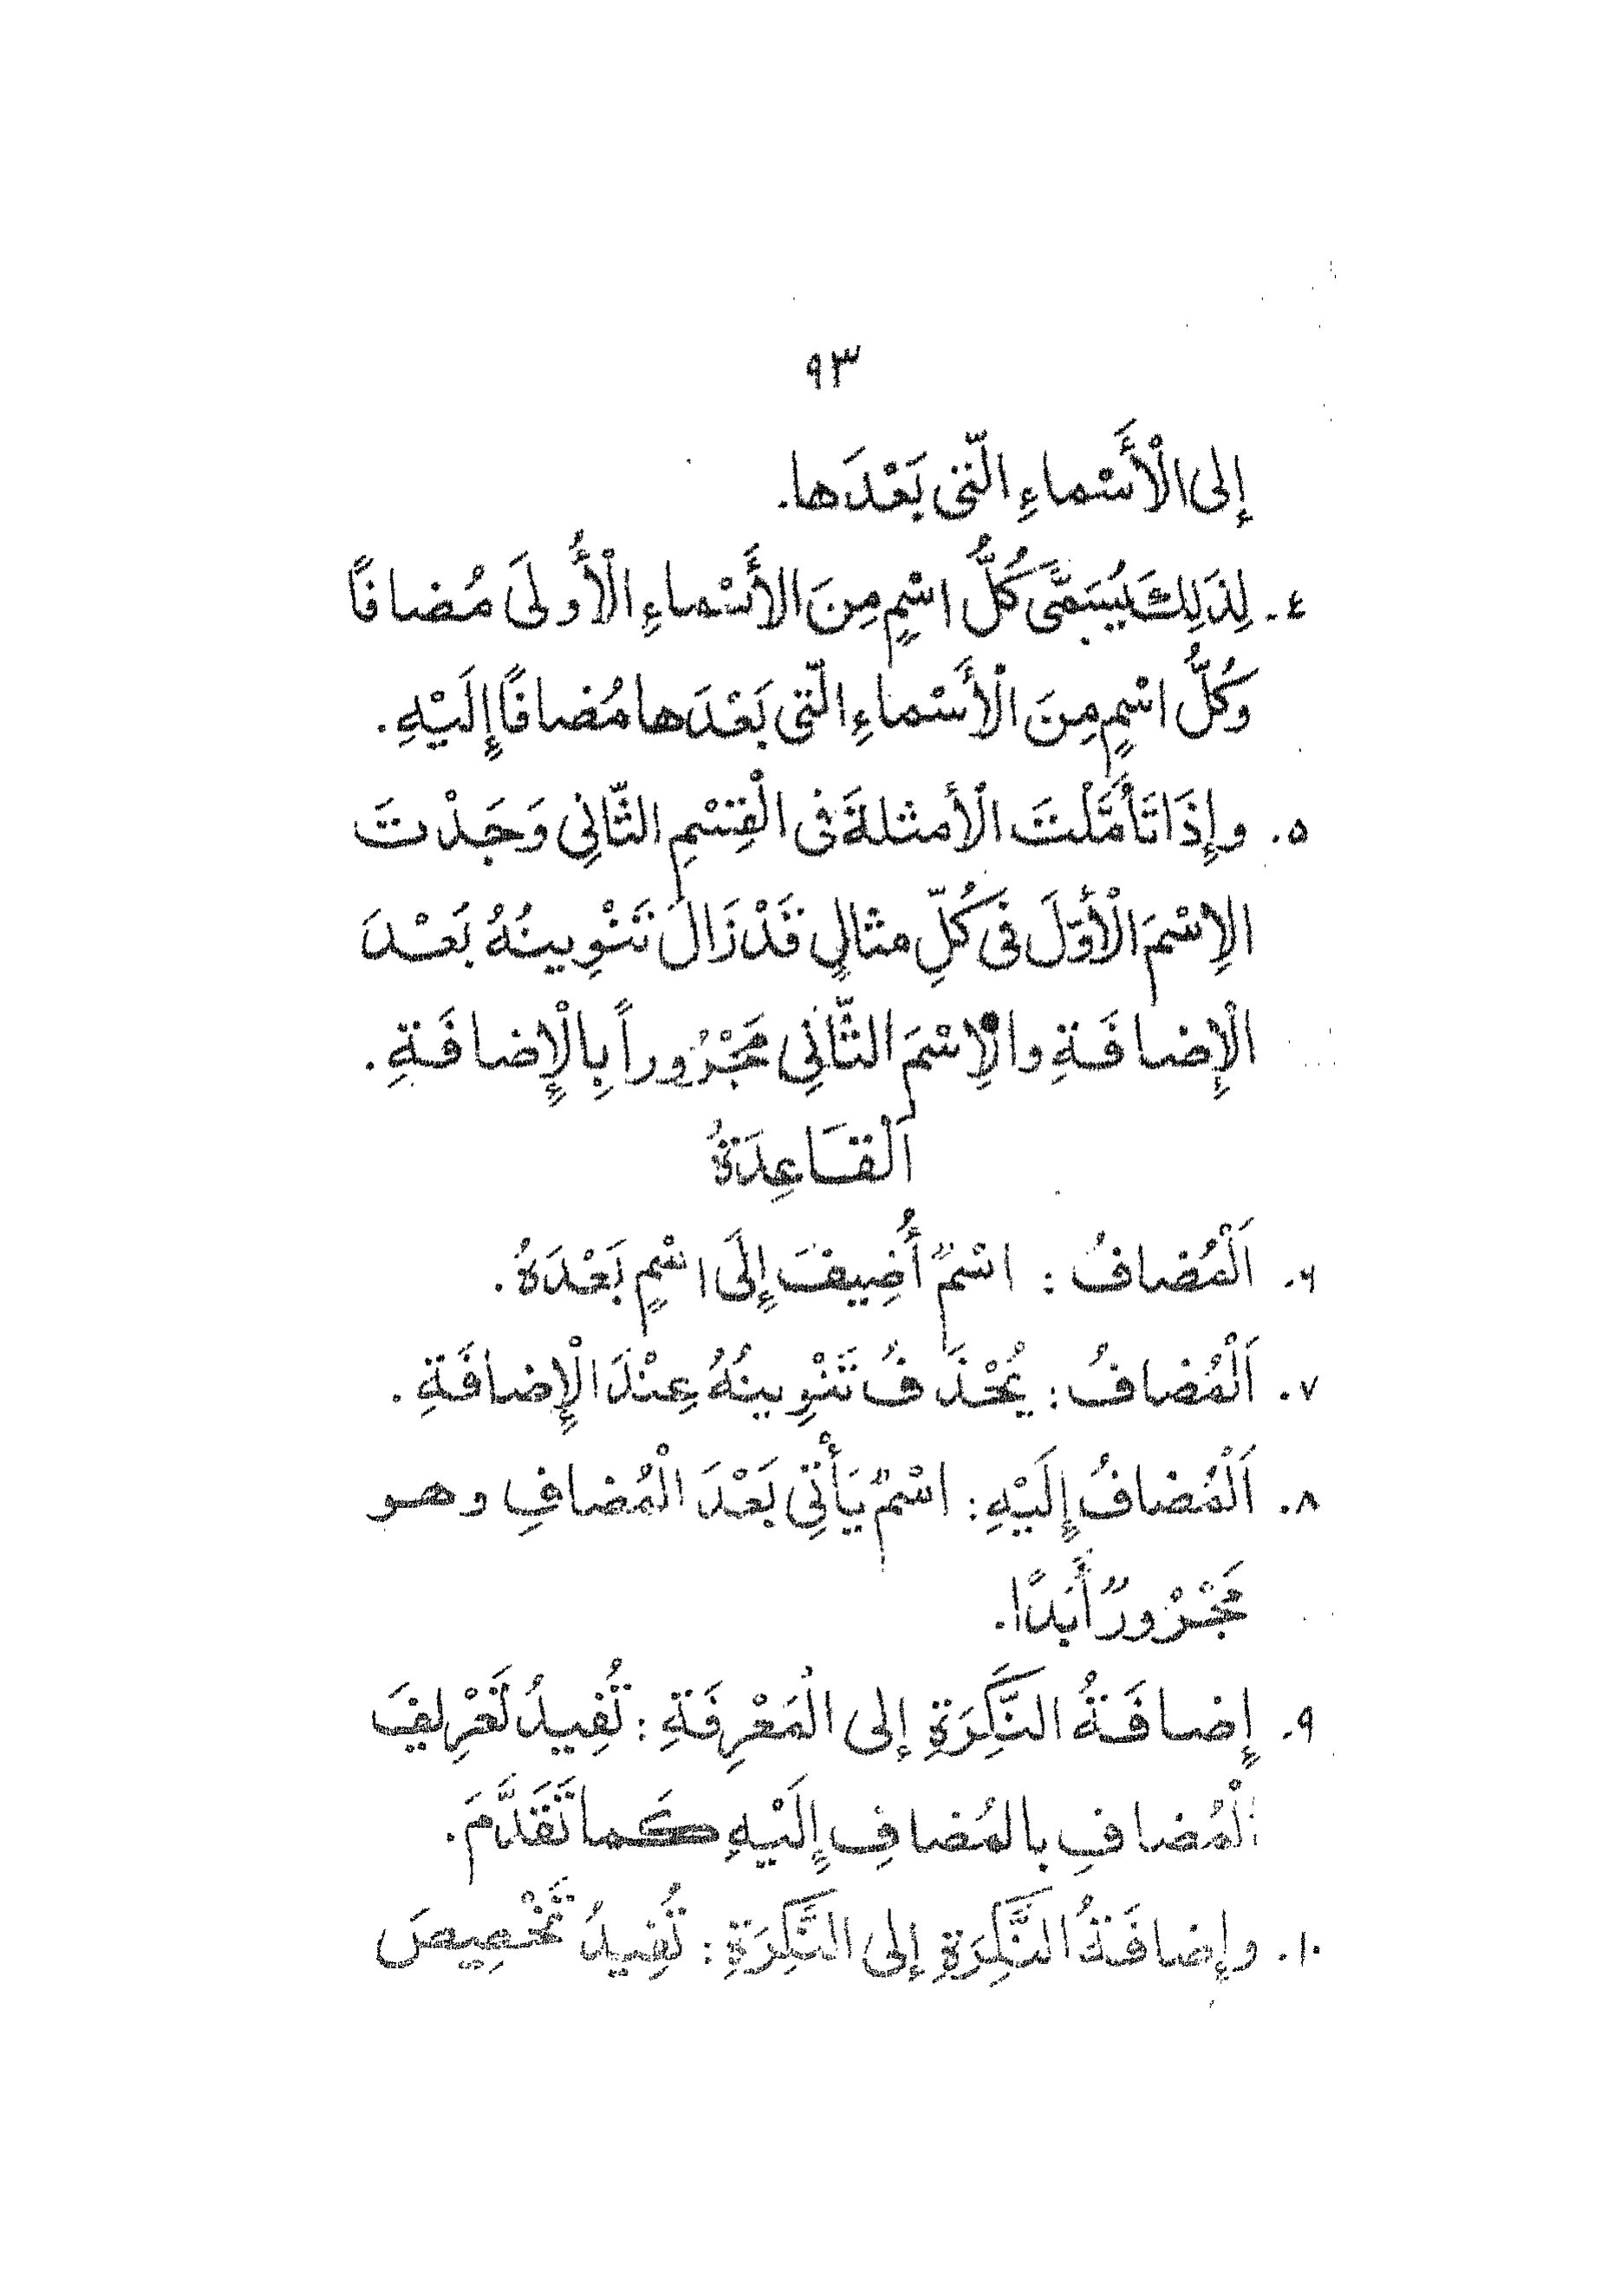 ٩٣
إلى الْأَسْماءِ الّتى بَعْدَها.
٤. لِذَلِكَ يُسَمَّى كُلُّ اسْمٍ مِنَ الأَسْماءِ الْأُولَى مُضافًا
وَكُلُّ اسْمٍ مِنَ الْأَسْماءِ الّتى بَعْدَها مُضافًا إِلَيْهِ.
٥. وإِذَا تَأَمَّلْتَ الْأمثلةَ فى الْقِسْمِ الثّانِي وَجَدْتَ
الإِسْمَ الْأَوّلَ فى كُلِّ مثالٍ قَدْ زَالَ تَنْوِينُهُ بَعْدَ
الْإِضافَةِ والْاِسْمَ الثّانِي مَجْرُوراً بِالْإِضافَةِ.
اَلْقَاعِدَةُ
٦. اَلْمُضافُ : اسْمٌ أُضِيفَ إِلَى اسْمٍ بَعْدَهُ.
٧. اَلْمُضافُ: يُحْذَفُ تَنْوِينُهُ عِنْدَ الْإِضافَةِ.
٨. اَلْمُضافُ إِلَيْهِ: اسْمٌ يَأْتِى بَعْدَ الْمُضافِ وهو
مَجْرُورٌ أَبَدًا.
٩. إِضافَةُ النَّكِرَةِ إلى الْمَعْرِفَةِ: تُفِيدُ تَعْرِيفَ
الْمُضافِ بالمُضافِ إِلَيْهِ كَما تَقَدَّمَ.
١٠. وإِضافَةُ النَّكِرَةِ إلى النَّكِرَةِ: تُفِيدُ تَخْصِيصَ